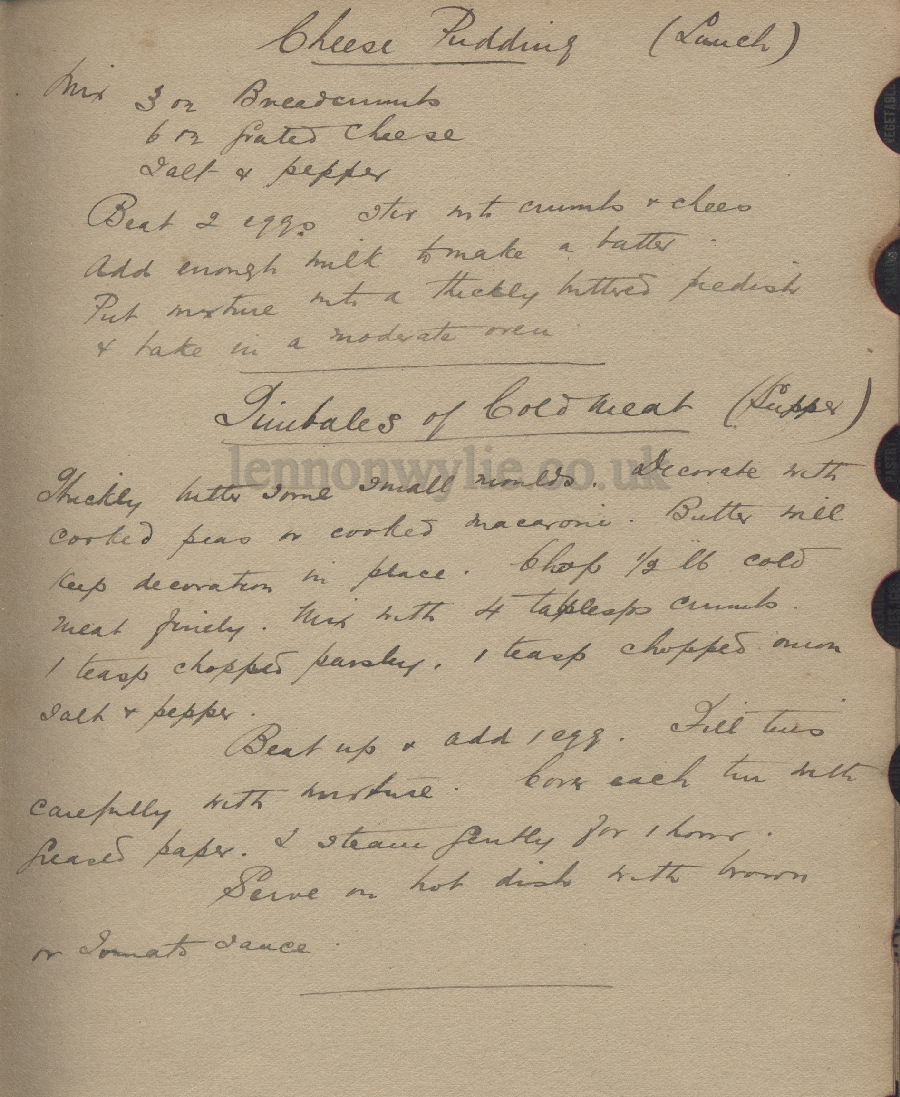 Cheese Pudding (Lunch)
Mix 3 oz Breadcrumbs
6 oz grated cheese
Salt & pepper
Beat 2 eggs stir into crumbs & chees
Add enough milk to make a batter.
Put mixture into a thickly buttered piedish
& bake in a moderate oven
Timbales of Cold Meat (Supper)
lennonwylie.co.uk
Thickly butter some small moulds. Decorate with
cooked peas or cooked macaroni. Butter will
keep decoration in place. Chop 1/2 lb cold
meat finely. Mix with 4 tablesps crumbs.
1 teasp chopped parsley, 1 teasp chopped onion
Salt & pepper.
Beat up & add 1 egg. Fill tins
carefully with mixture. Cover each tin with
greased paper. & steam gently for 1 hour.
Serve on hot dish with brown
or Tomato Sauce.
VEGETABLE
SALADS
PASTRY